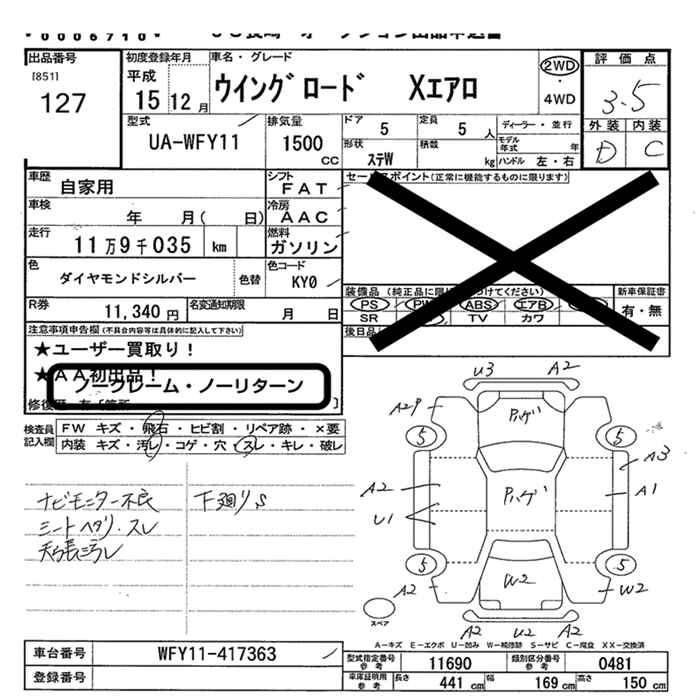 0006710
出品番号
[851]
127
初度登録年月
平成
15 12月
車名・グレード
ウイングロード Xエアロ
2WD・
4WD
評価点
3.5
外装 内装
D C
型式
UA-WFY11
排気量
1500
CC
ドア 5
定員 5人
ディーラー・並行
モデル年式 年
形状 ステW
積数 kg
ハンドル 左・右
車歴 自家用
シフト FAT
車検 年 月( 日)
冷房 AAC
走行 11万9千035 km
燃料 ガソリン
色 ダイヤモンドシルバー
色替
色コード KY0
R券 11,340円
名変通知期限 月 日
セールスポイント(正常に機能するものに限ります)
装備品(純正品に限り
つけてください)
PS PW ABS エアB
SR TV カワ
後日品
新車保証書
有・無
注意事項申告欄(不具合内容等は具体的に記入して下さい)
★ユーザー買取り!
★AA初出品!
ノークレーム・ノーリターン
検査員記入欄
FW キズ・飛石・ヒビ割・リペア跡・×要
内装 キズ・汚レ・コゲ・穴・スレ・キレ・破レ
ナビモニター不良
シートヘタリ・スレ
天張汚レ
下廻りS
U3 A2
A2
5 5
A3
A2 A1
U1
5 5
A2 W2 W2
A2 U2 A2
スペア
A-キズ E-エクボ U-凹み W-補修跡 S-サビ C-腐食 XX-交換済
車台番号 WFY11-417363
登録番号
型式指定番号参考 11690
類別区分番号参考 0481
車庫証明用参考
長さ 441cm
幅 169cm
高さ 150cm